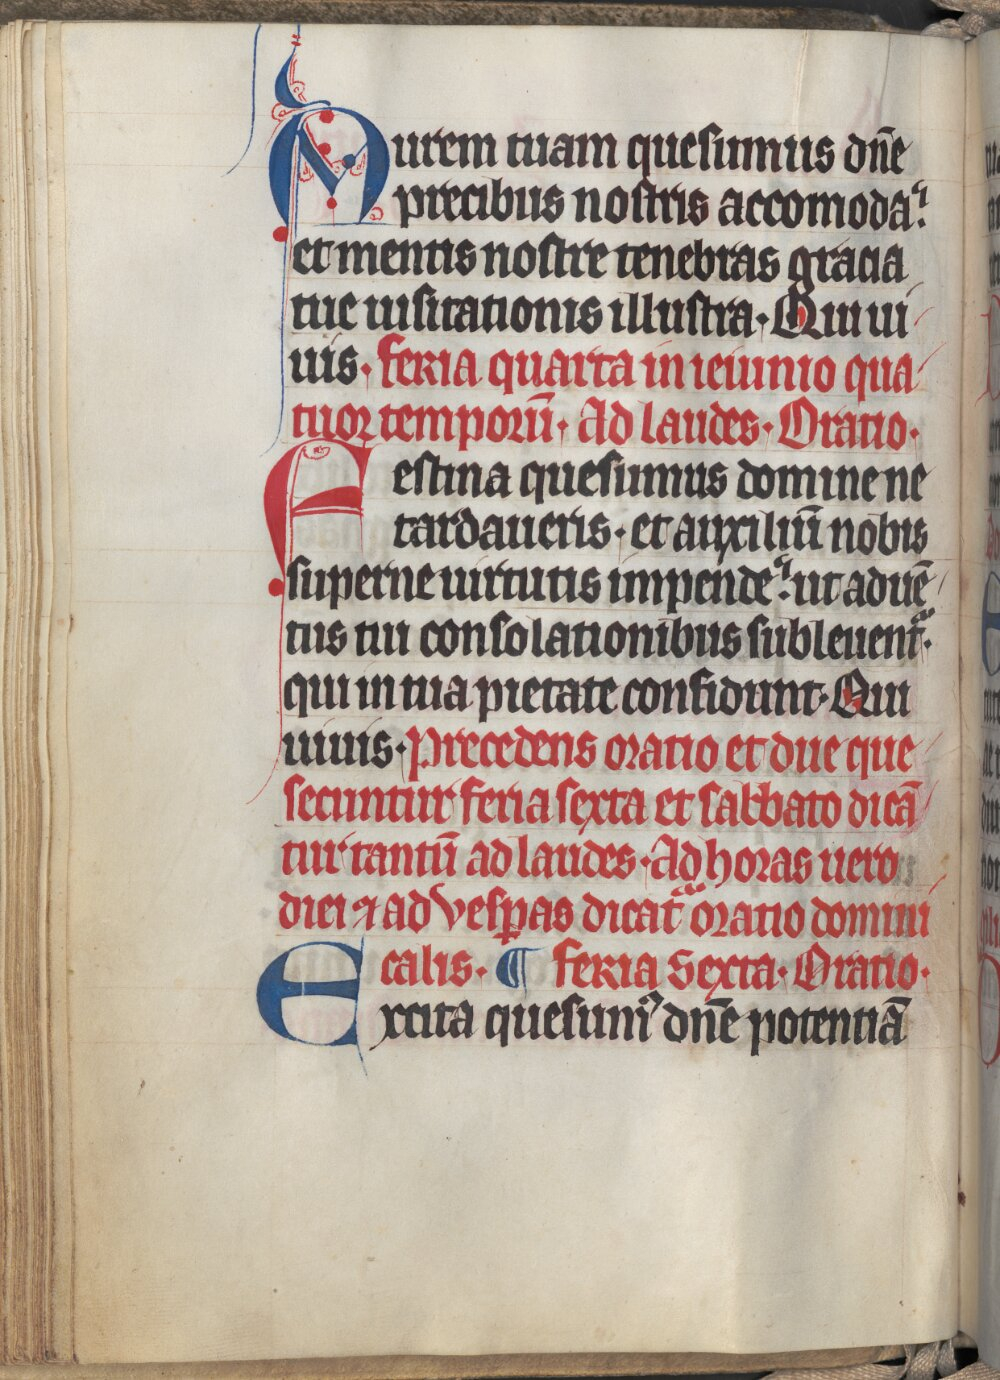 Aurem tuam quesumus dn̄e
precibus nostris accomoda:
et mentis nostre tenebras gracia
tue uisitationis illustra· Qui ui
uis· feria quarta in ieiunio qua
tuor temporū· Ad laudes· Oratio·
Festina quesumus domine ne
tardaueris· et auxiliū nobis
superne uirtutis impende: ut aduē
tus tui consolationibus subleuent᷑·
qui in tua pietate confidunt· Qui
uiuis· Precedens oratio et due que
secuntur feria sexta et sabbato dicā
tur tantū ad laudes· Ad horas uero
diei ⁊ ad vesꝑas dicat᷑ oratio domini
calis· ¶ feria sexta· Oratio·
Excita quesumꝰ dn̄e potentiā